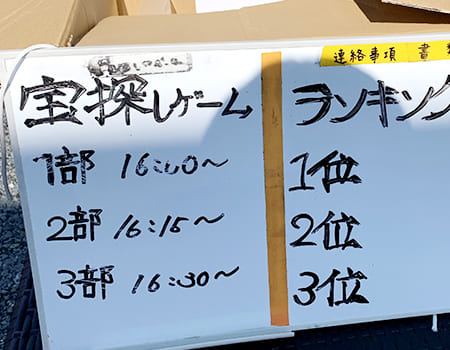 宝探しゲーム
1部 16:00~
2部 16:15~
3部 16:30~
連絡事項
ランキング
1位
2位
3位